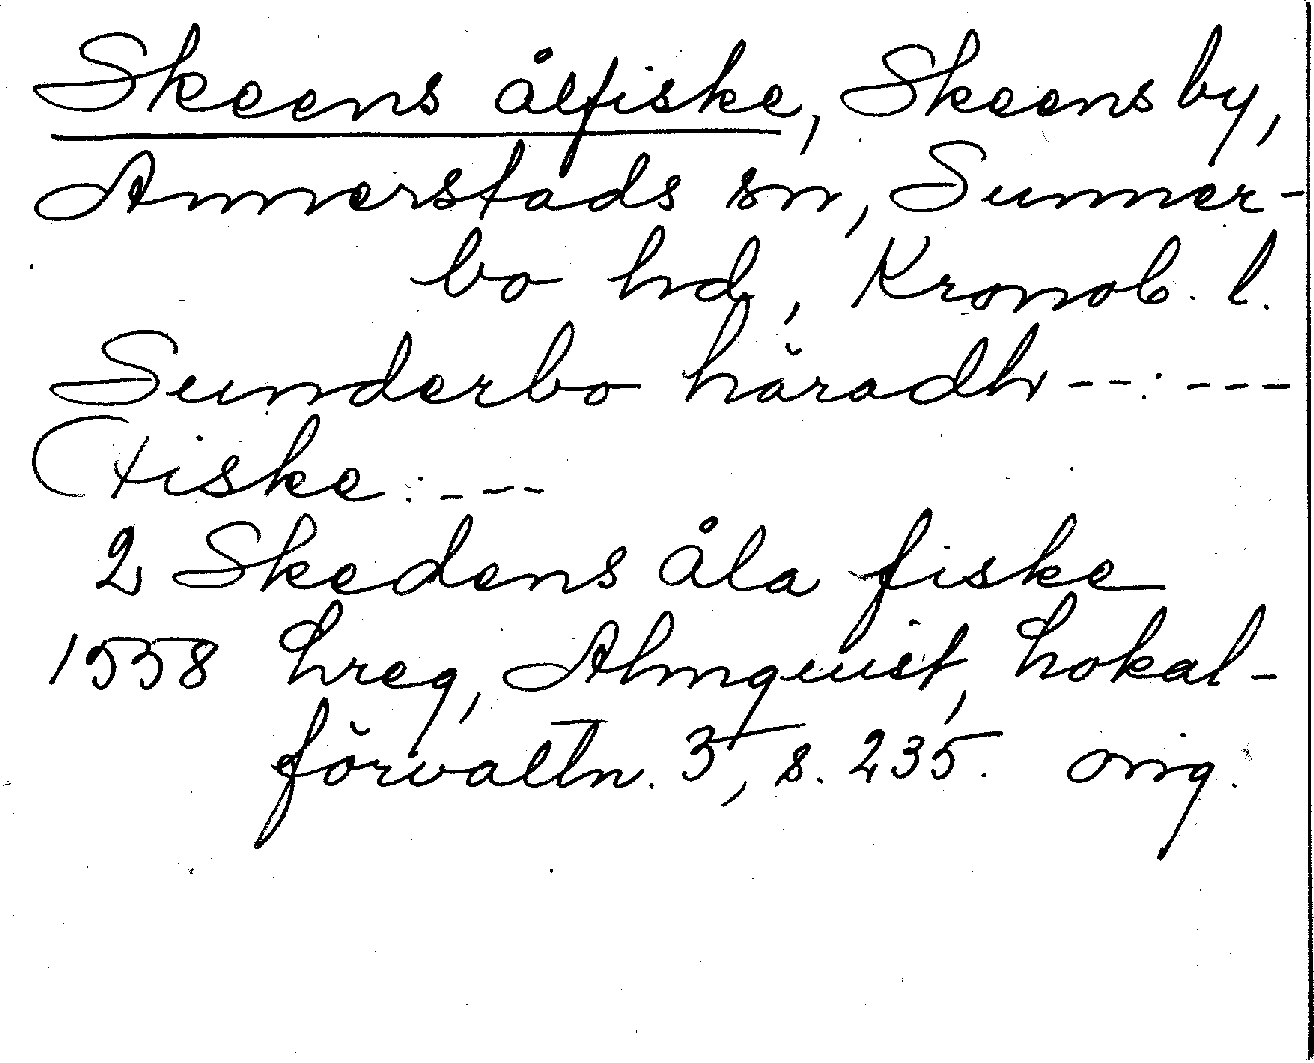 Skeens ålfiske, Skeens by,
Annerstads sn, Sunner-
bo hd, Kronob. l.
Sunderbo häradh --:---
Fiske: ---
2 Skedens åla fiske
1558 Lreg, Almquist, Lokal-
förvaltn. 3, s. 235. orig.